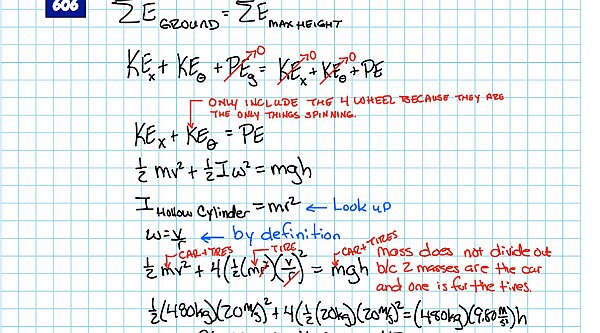 606
ΣE GROUND = ΣE MAX HEIGHT
KEx + KEθ + PEg→0 = KEx→0 + KEθ→0 + PE
ONLY INCLUDE THE 4 WHEEL BECAUSE THEY ARE
THE ONLY THINGS SPINNING.
KEx + KEθ = PE
½ mv² + ½ Iω² = mgh
I Hollow Cylinder = mr² ← Look up
ω = v/r ← by definition
CAR + TIRES TIRE CAR + TIRES
½ mv² + 4(½(mr²)(v/r)² = mgh
mass does not divide out
b/c 2 masses are the car
and one is for the tires.
½(480kg)(20 m/s)² + 4(½(20kg)(20 m/s)² = (480kg)(9.80 m/s²)h